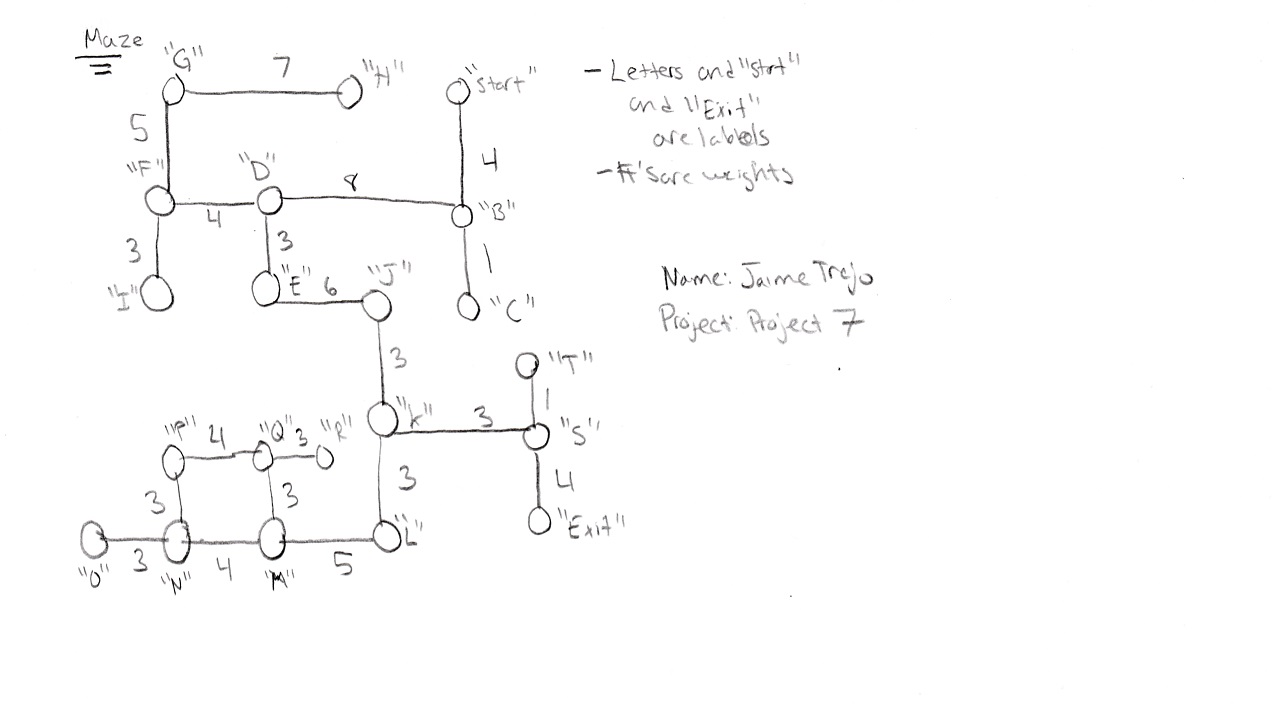 Maze
"G"
7
"H"
"Start"
5
4
"F"
"D"
8
"B"
4
3
3
1
"I"
"E"
6
"J"
"C"
3
"T"
1
"K"
3
"S"
"P"
4
"Q"
3
"R"
3
4
3
3
"Exit"
"L"
"O"
3
"N"
4
"M"
5
- Letters and "Strt"
and "Exit"
are labels
- #'s are weights
Name: Jaime Trejo
Project: Project 7